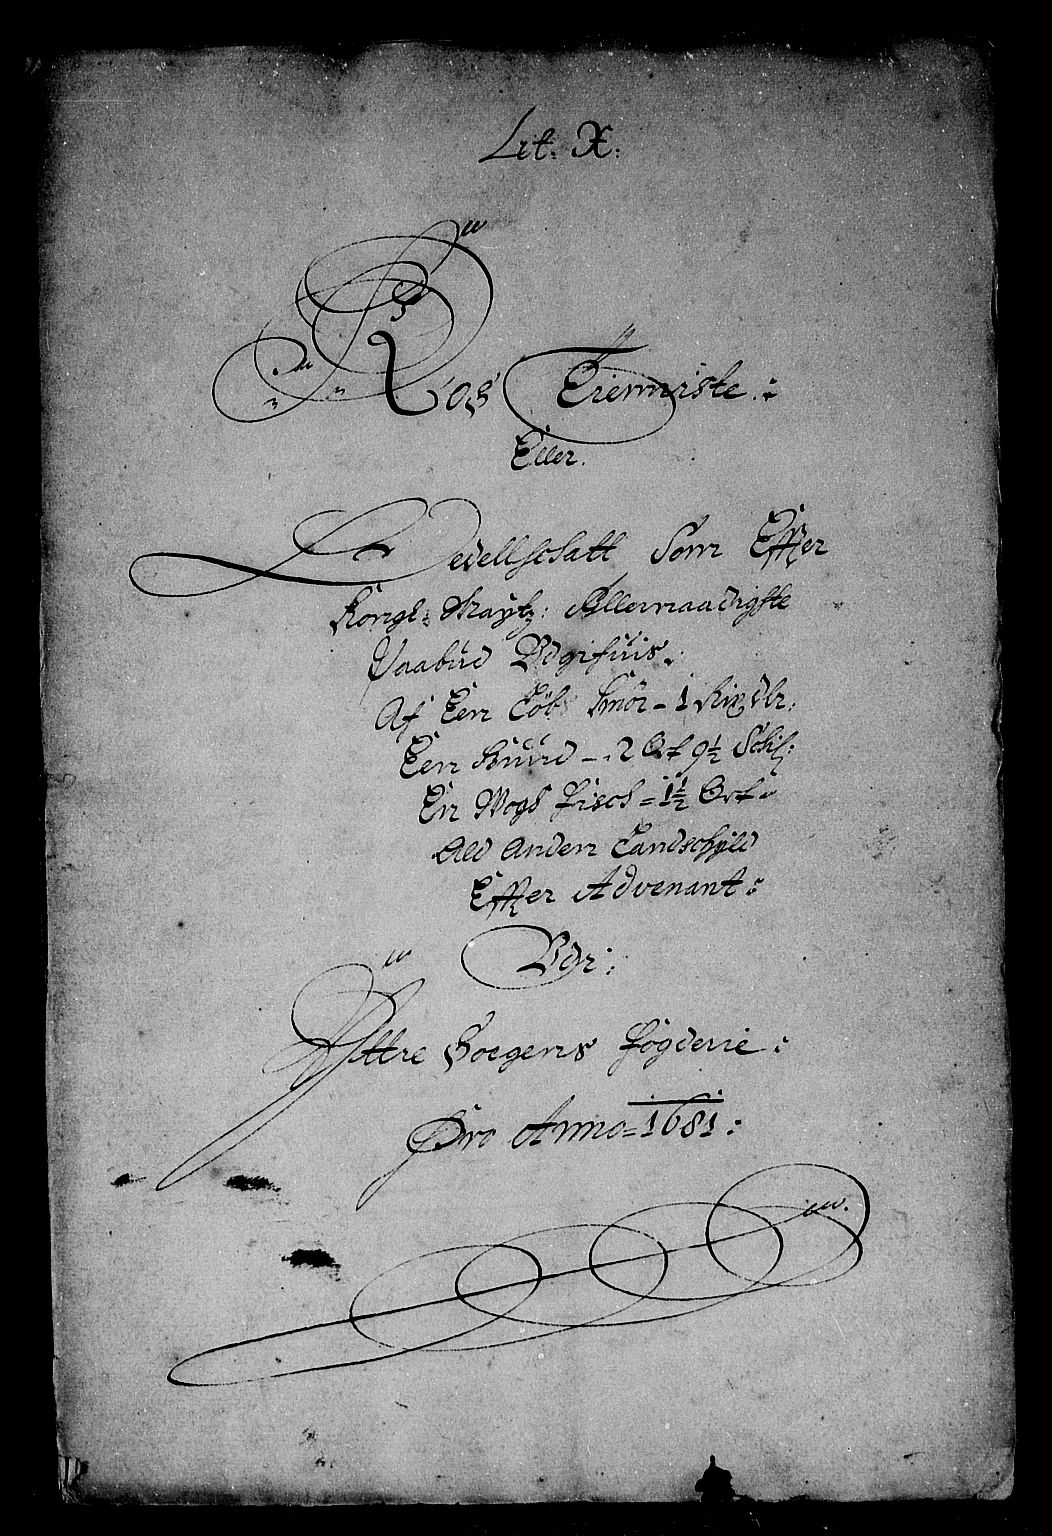 Lit: X:
Ros Tienniste:
Eller.
Ledellschatt Som Effter
Kongl: Maytz: Allernaadigste
Paabud Udgifuis.
Af Een Løb Smør - 1 Rixdlr:
Een Huud - 2 Ort 9½ Schil:
En Wogh Fisch = 1½ Ort
Ald Anden Landschyld
Effter Advenant:
Udi:
Yttre Soegens Fogderie:
Pro Anno = 1681: